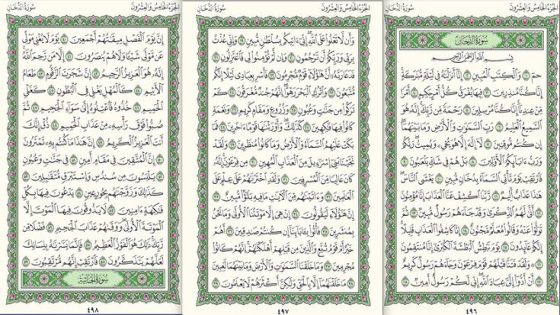 الجزء الخامس والعشرون
سورة الدخان
سورة الدخان
بسم الله الرحمن الرحيم
حم ۝ والكتاب المبين ۝ إنا أنزلناه في ليلة مباركة
إنا كنا منذرين ۝ فيها يفرق كل أمر حكيم ۝ أمرا
من عندنا إنا كنا مرسلين ۝ رحمة من ربك إنه هو
السميع العليم ۝ رب السماوات والأرض وما بينهما
إن كنتم موقنين ۝ لا إله إلا هو يحيي ويميت ربكم
ورب آبائكم الأولين ۝ بل هم في شك يلعبون ۝
فارتقب يوم تأتي السماء بدخان مبين ۝ يغشى الناس
هذا عذاب أليم ۝ ربنا اكشف عنا العذاب إنا مؤمنون
۝ أنى لهم الذكرى وقد جاءهم رسول مبين ۝ ثم
تولوا عنه وقالوا معلم مجنون ۝ إنا كاشفو العذاب قليلا
إنكم عائدون ۝ يوم نبطش البطشة الكبرى إنا منتقمون
۝ ولقد فتنا قبلهم قوم فرعون وجاءهم رسول كريم
۝ أن أدوا إلي عباد الله إني لكم رسول أمين ۝
٤٩٦
الجزء الخامس والعشرون
سورة الدخان
وأن لا تعلوا على الله إني آتيكم بسلطان مبين ۝ وإني عذت
بربي وربكم أن ترجمون ۝ وإن لم تؤمنوا لي فاعتزلون ۝
فدعا ربه أن هؤلاء قوم مجرمون ۝ فأسر بعبادي ليلا إنكم
متبعون ۝ واترك البحر رهوا إنهم جند مغرقون ۝ كم
تركوا من جنات وعيون ۝ وزروع ومقام كريم ۝ ونعمة
كانوا فيها فاكهين ۝ كذلك وأورثناها قوما آخرين ۝ فما
بكت عليهم السماء والأرض وما كانوا منظرين ۝ ولقد
نجينا بني إسرائيل من العذاب المهين ۝ من فرعون إنه
كان عاليا من المسرفين ۝ ولقد اخترناهم على علم على
العالمين ۝ وآتيناهم من الآيات ما فيه بلاء مبين ۝
إن هؤلاء ليقولون ۝ إن هي إلا موتتنا الأولى وما نحن
بمنشرين ۝ فأتوا بآبائنا إن كنتم صادقين ۝ أهم
خير أم قوم تبع والذين من قبلهم أهلكناهم إنهم كانوا
مجرمين ۝ وما خلقنا السماوات والأرض وما بينهما لاعبين
۝ ما خلقناهما إلا بالحق ولكن أكثرهم لا يعلمون ۝
٤٩٧
الجزء الخامس والعشرون
سورة الدخان
إن يوم الفصل ميقاتهم أجمعين ۝ يوم لا يغني مولى
عن مولى شيئا ولا هم ينصرون ۝ إلا من رحم الله
إنه هو العزيز الرحيم ۝ إن شجرت الزقوم ۝ طعام
الأثيم ۝ كالمهل يغلي في البطون ۝ كغلي
الحميم ۝ خذوه فاعتلوه إلى سواء الجحيم ۝ ثم
صبوا فوق رأسه من عذاب الحميم ۝ ذق إنك
أنت العزيز الكريم ۝ إن هذا ما كنتم به تمترون
۝ إن المتقين في مقام أمين ۝ في جنات وعيون
۝ يلبسون من سندس وإستبرق متقابلين ۝
كذلك وزوجناهم بحور عين ۝ يدعون فيها بكل
فاكهة آمنين ۝ لا يذوقون فيها الموت إلا
الموتة الأولى ووقاهم عذاب الجحيم ۝ فضلا من
ربك ذلك هو الفوز العظيم ۝ فإنما يسرناه بلسانك
لعلهم يتذكرون ۝ فارتقب إنهم مرتقبون ۝
سورة الجاثية
٤٩٨